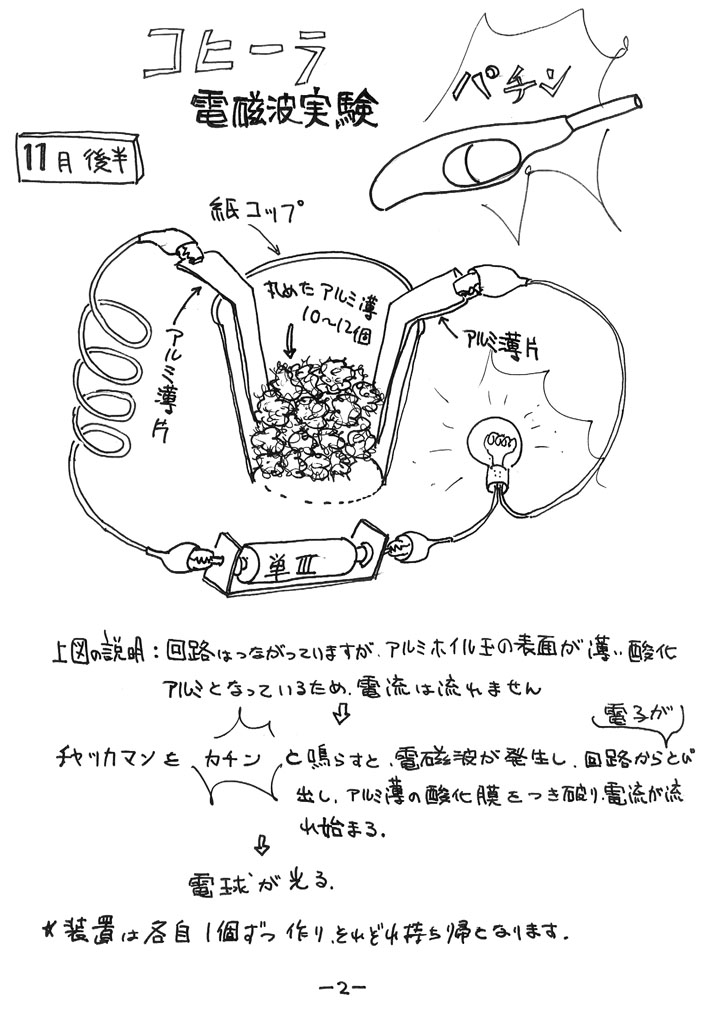 コヒーラ
電磁波実験
パチン
11月 後半
紙コップ
丸めたアルミ薄
10〜12個
アルミ薄片
アルミ薄片
単Ⅲ
上図の説明：回路はつながっていますが、アルミホイル玉の表面が薄い酸化
アルミとなっているため、電流は流れません
⇩
電子が
チャッカマンを カチン と鳴らすと、電磁波が発生し、回路からとび
出し、アルミ薄の酸化膜をつき破り、電流が流
れ始まる。
⇩
電球が光る。
* 装置は各自1個ずつ作り、それぞれ持ち帰となります。
－2－